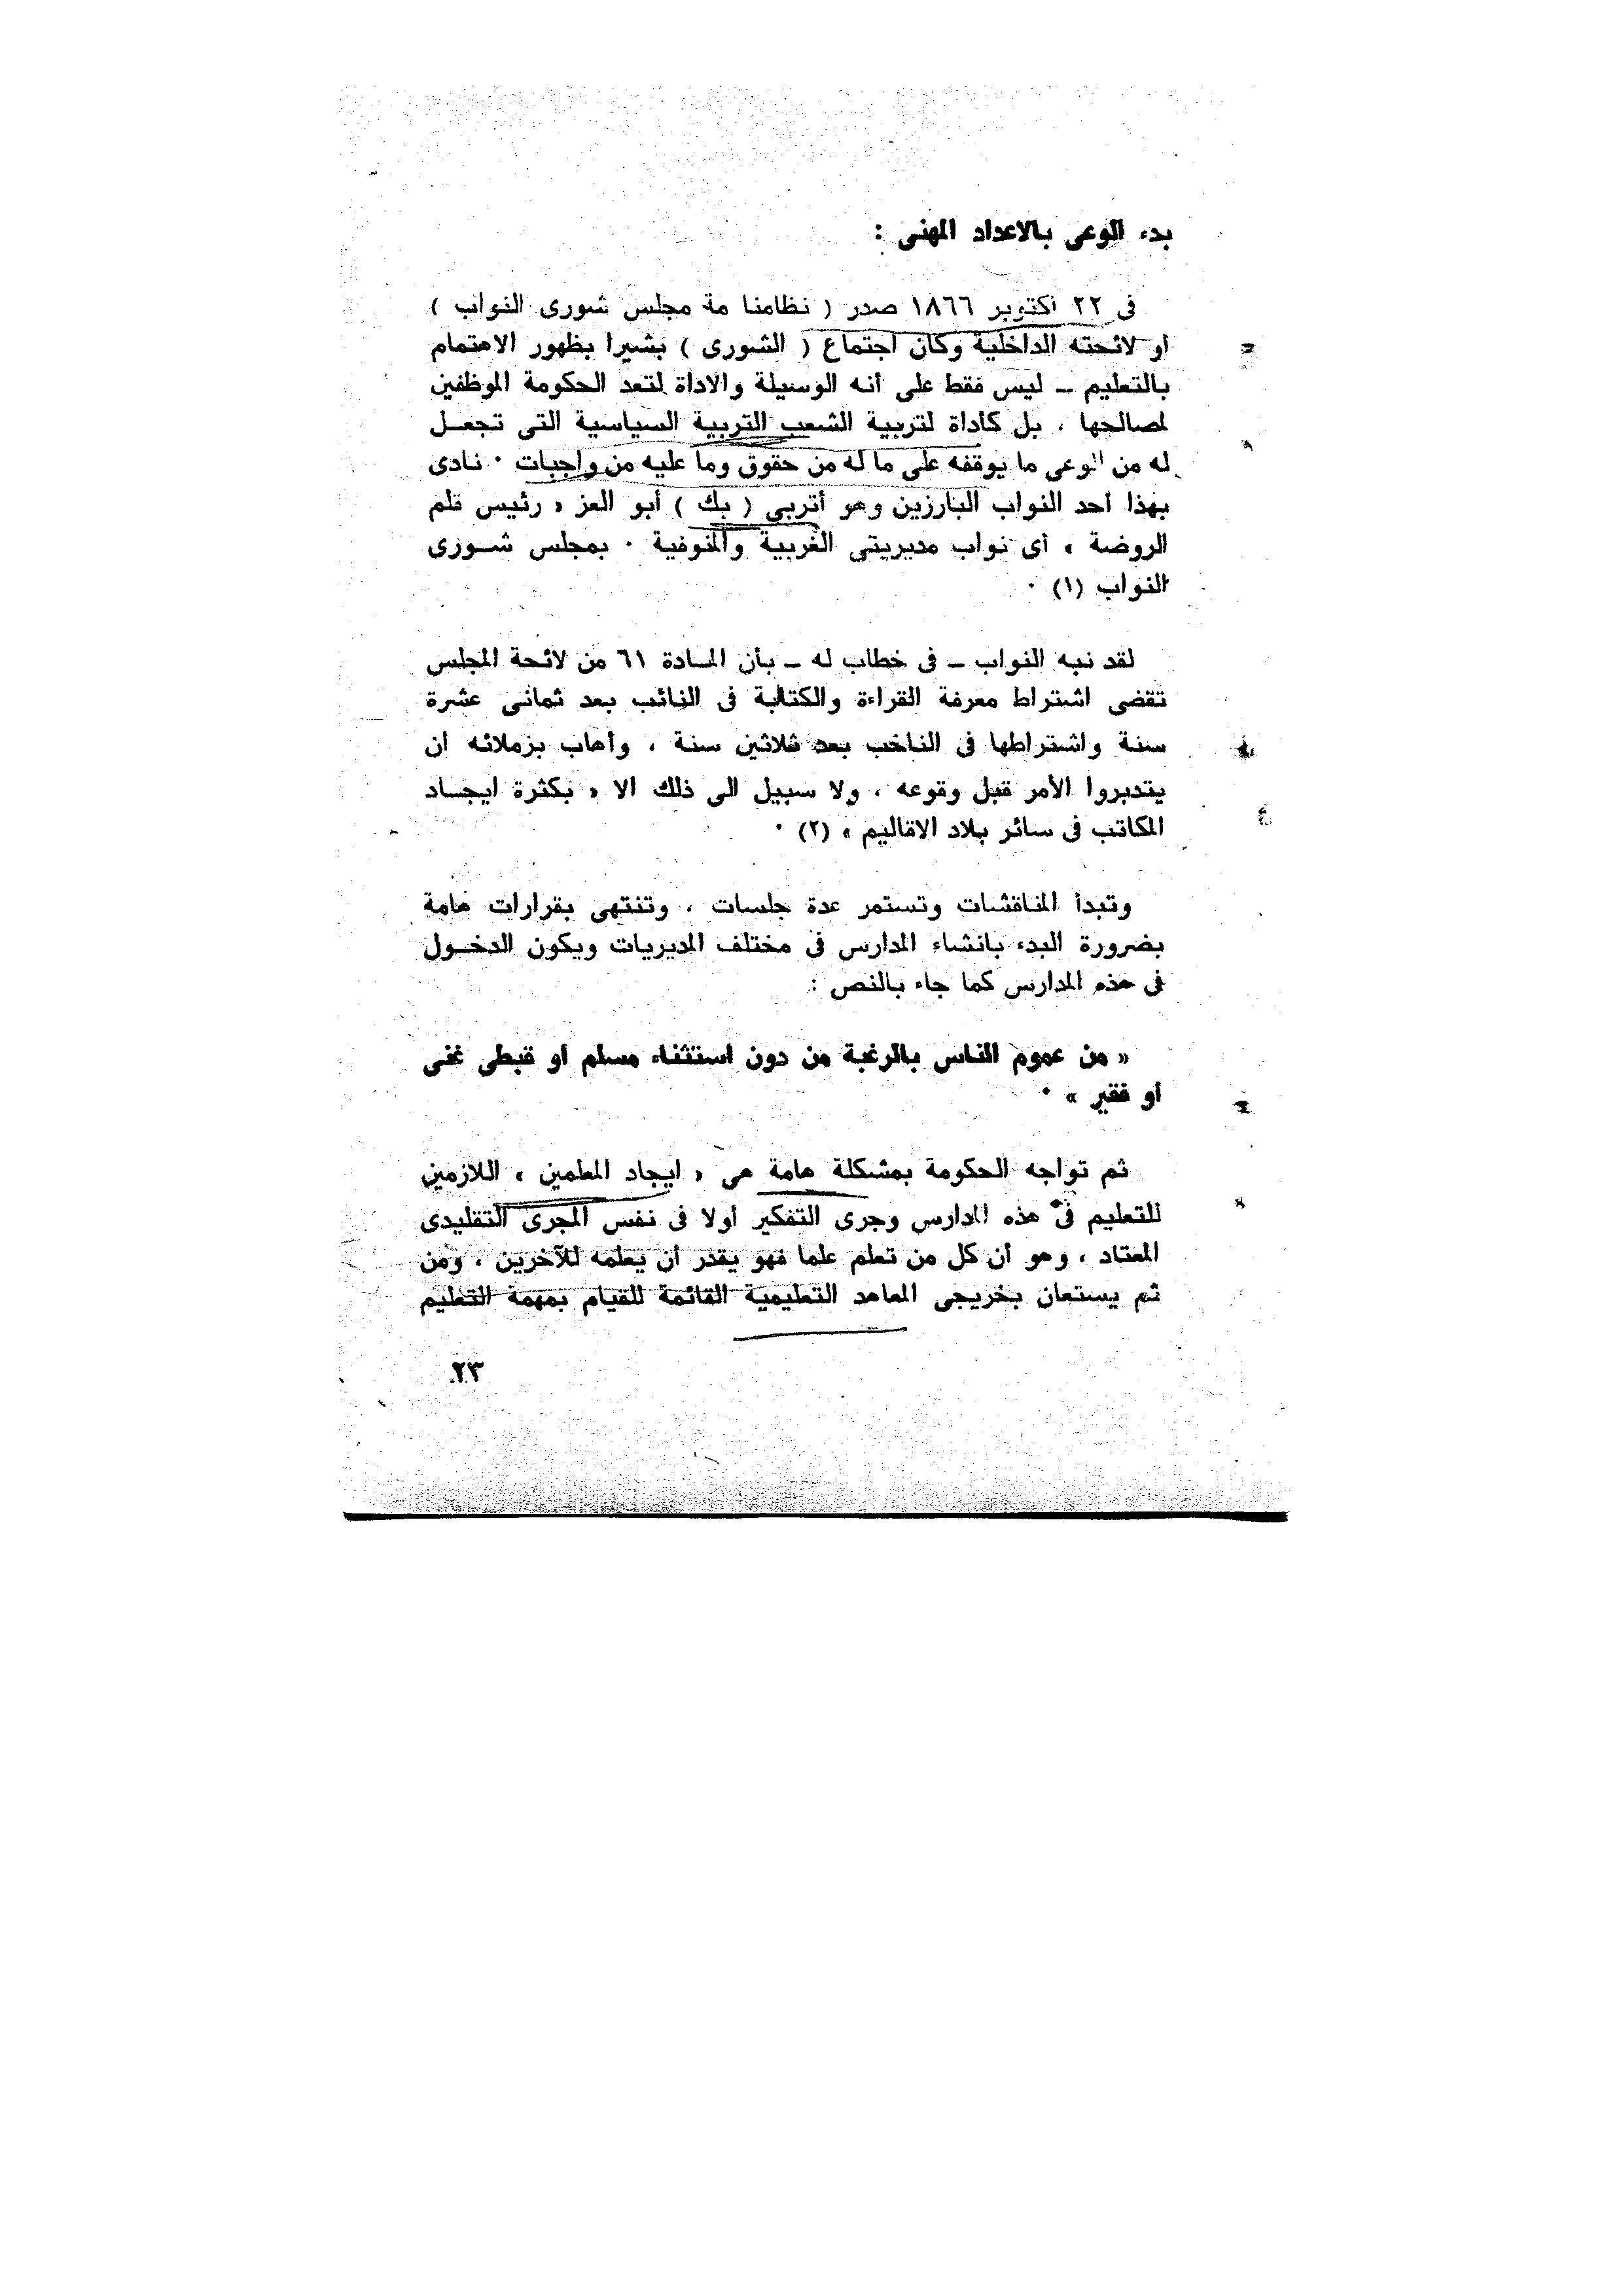 بدء الوعى بالاعداد المهنى :
فى ٢٢ أكتوبر ١٨٦٦ صدر ( نظامنا مة مجلس شورى النواب )
او لائحته الداخلية وكان اجتماع ( الشورى ) بشيرا بظهور الاهتمام
بالتعليم ــ ليس فقط على أنه الوسيلة والاداة لتعد الحكومة الموظفين
لمصالحها ، بل كأداة لتربية الشعب التربية السياسية التى تجعــل
له من الوعى ما يوقفه على ما له من حقوق وما عليه من واجبات ٠ نادى
بهذا أحد النواب البارزين وهو أتربى ( بك ) أبو العز « رئيس قلم
الروضة » أى نواب مديريتى الغربية والمنوفية ٠ بمجلس شــورى
النواب (١) ٠
لقد نبه النواب ــ فى خطاب له ــ بأن المـادة ٦١ من لائحة المجلس
تقضى اشتراط معرفة القراءة والكتابة فى النائب بعد ثمانى عشرة
سنة واشتراطها فى الناخب بعد ثلاثين سنة ، وأهاب بزملائه ان
يتدبروا الأمر قبل وقوعه ، ولا سبيل الى ذلك الا « بكثرة ايجــاد
المكاتب فى سائر بلاد الاقاليم » (٢) ٠
وتبدأ المناقشات وتستمر عدة جلسات ، وتنتهى بقرارات هامة
بضرورة البدء بانشاء المدارس فى مختلف المديريات ويكون الدخــول
فى هذه المدارس كما جاء بالنص :
« من عموم الناس بالرغبة من دون استثناء مسلم او قبطى غنى
أو فقير » ٠
ثم تواجه الحكومة بمشكلة هامة هى « ايجاد المعلمين » اللازمين
للتعليم فى هذه المدارس وجرى التفكير أولا فى نفس المجرى التقليدى
المعتاد ، وهو أن كل من تعلم علما فهو يقدر أن يعلمه للآخرين ، ومن
ثم يستعان بخريجى المعاهد التعليمية القائمة للقيام بمهمة التعليم
٢٣